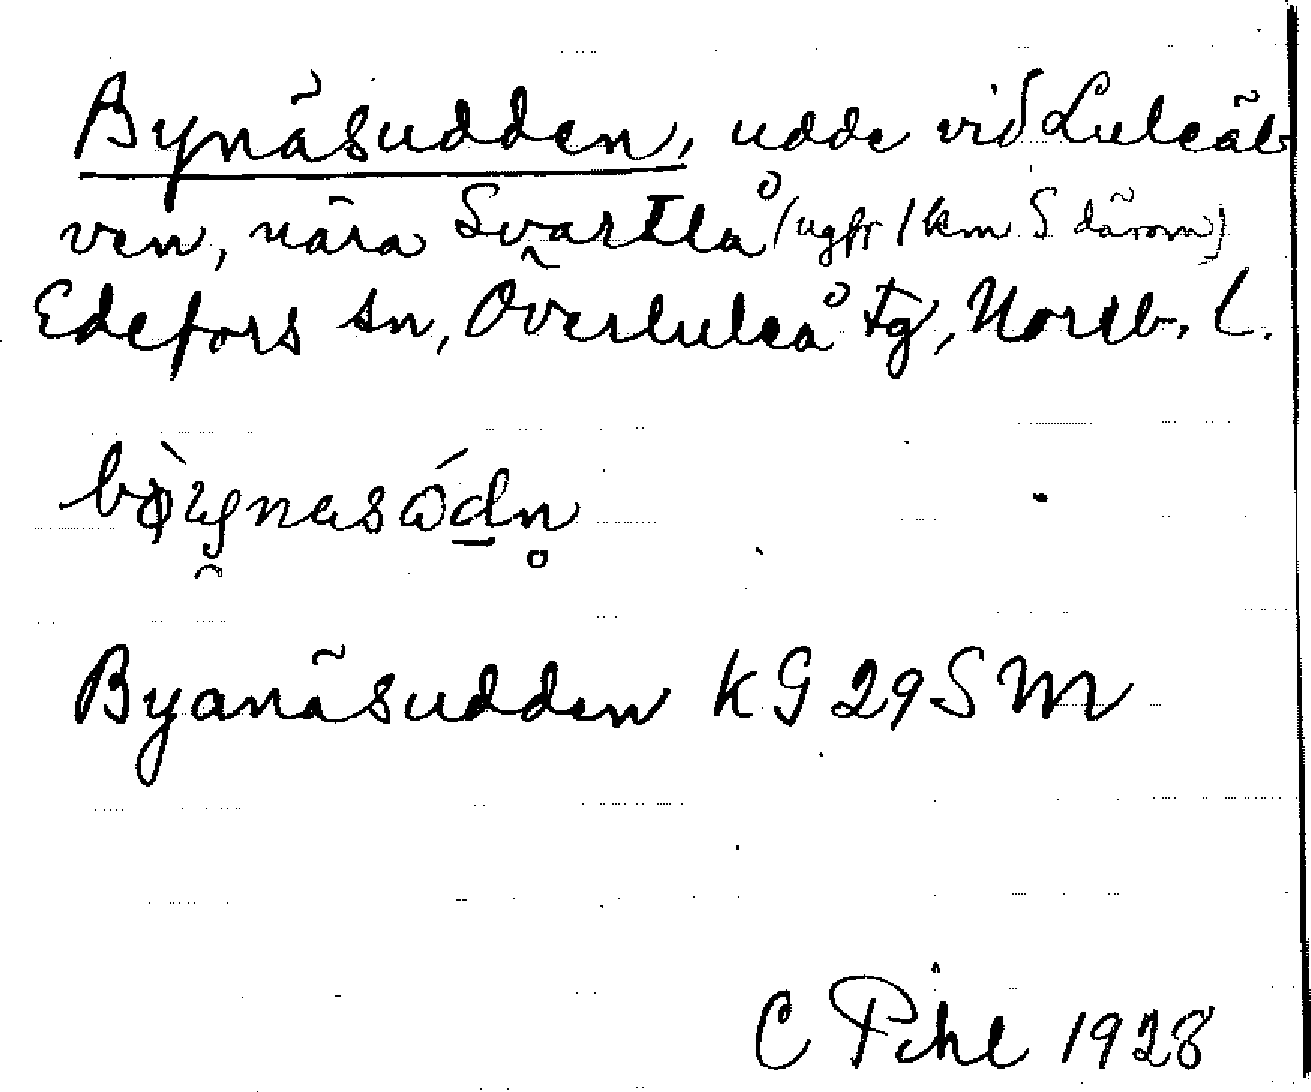 Bynäsudden, udde vid Luleäl-
ven, nära Svartlå (ugfr 1 km S därom)
Edefors sn, Överluleå tg, Norrb. l.
Byanäsudden KG 29 S M
C Pihl 1928